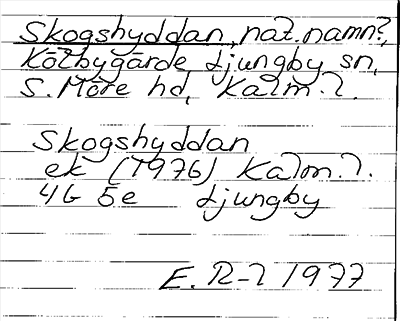 Skogshyddan, nat.namn?,
Kölbygärde Ljungby sn,
S. Möre hd, Kalm. l.
Skogshyddan
ek (1976) Kalm. l.
4G 5e Ljungby
E. R-l 1977